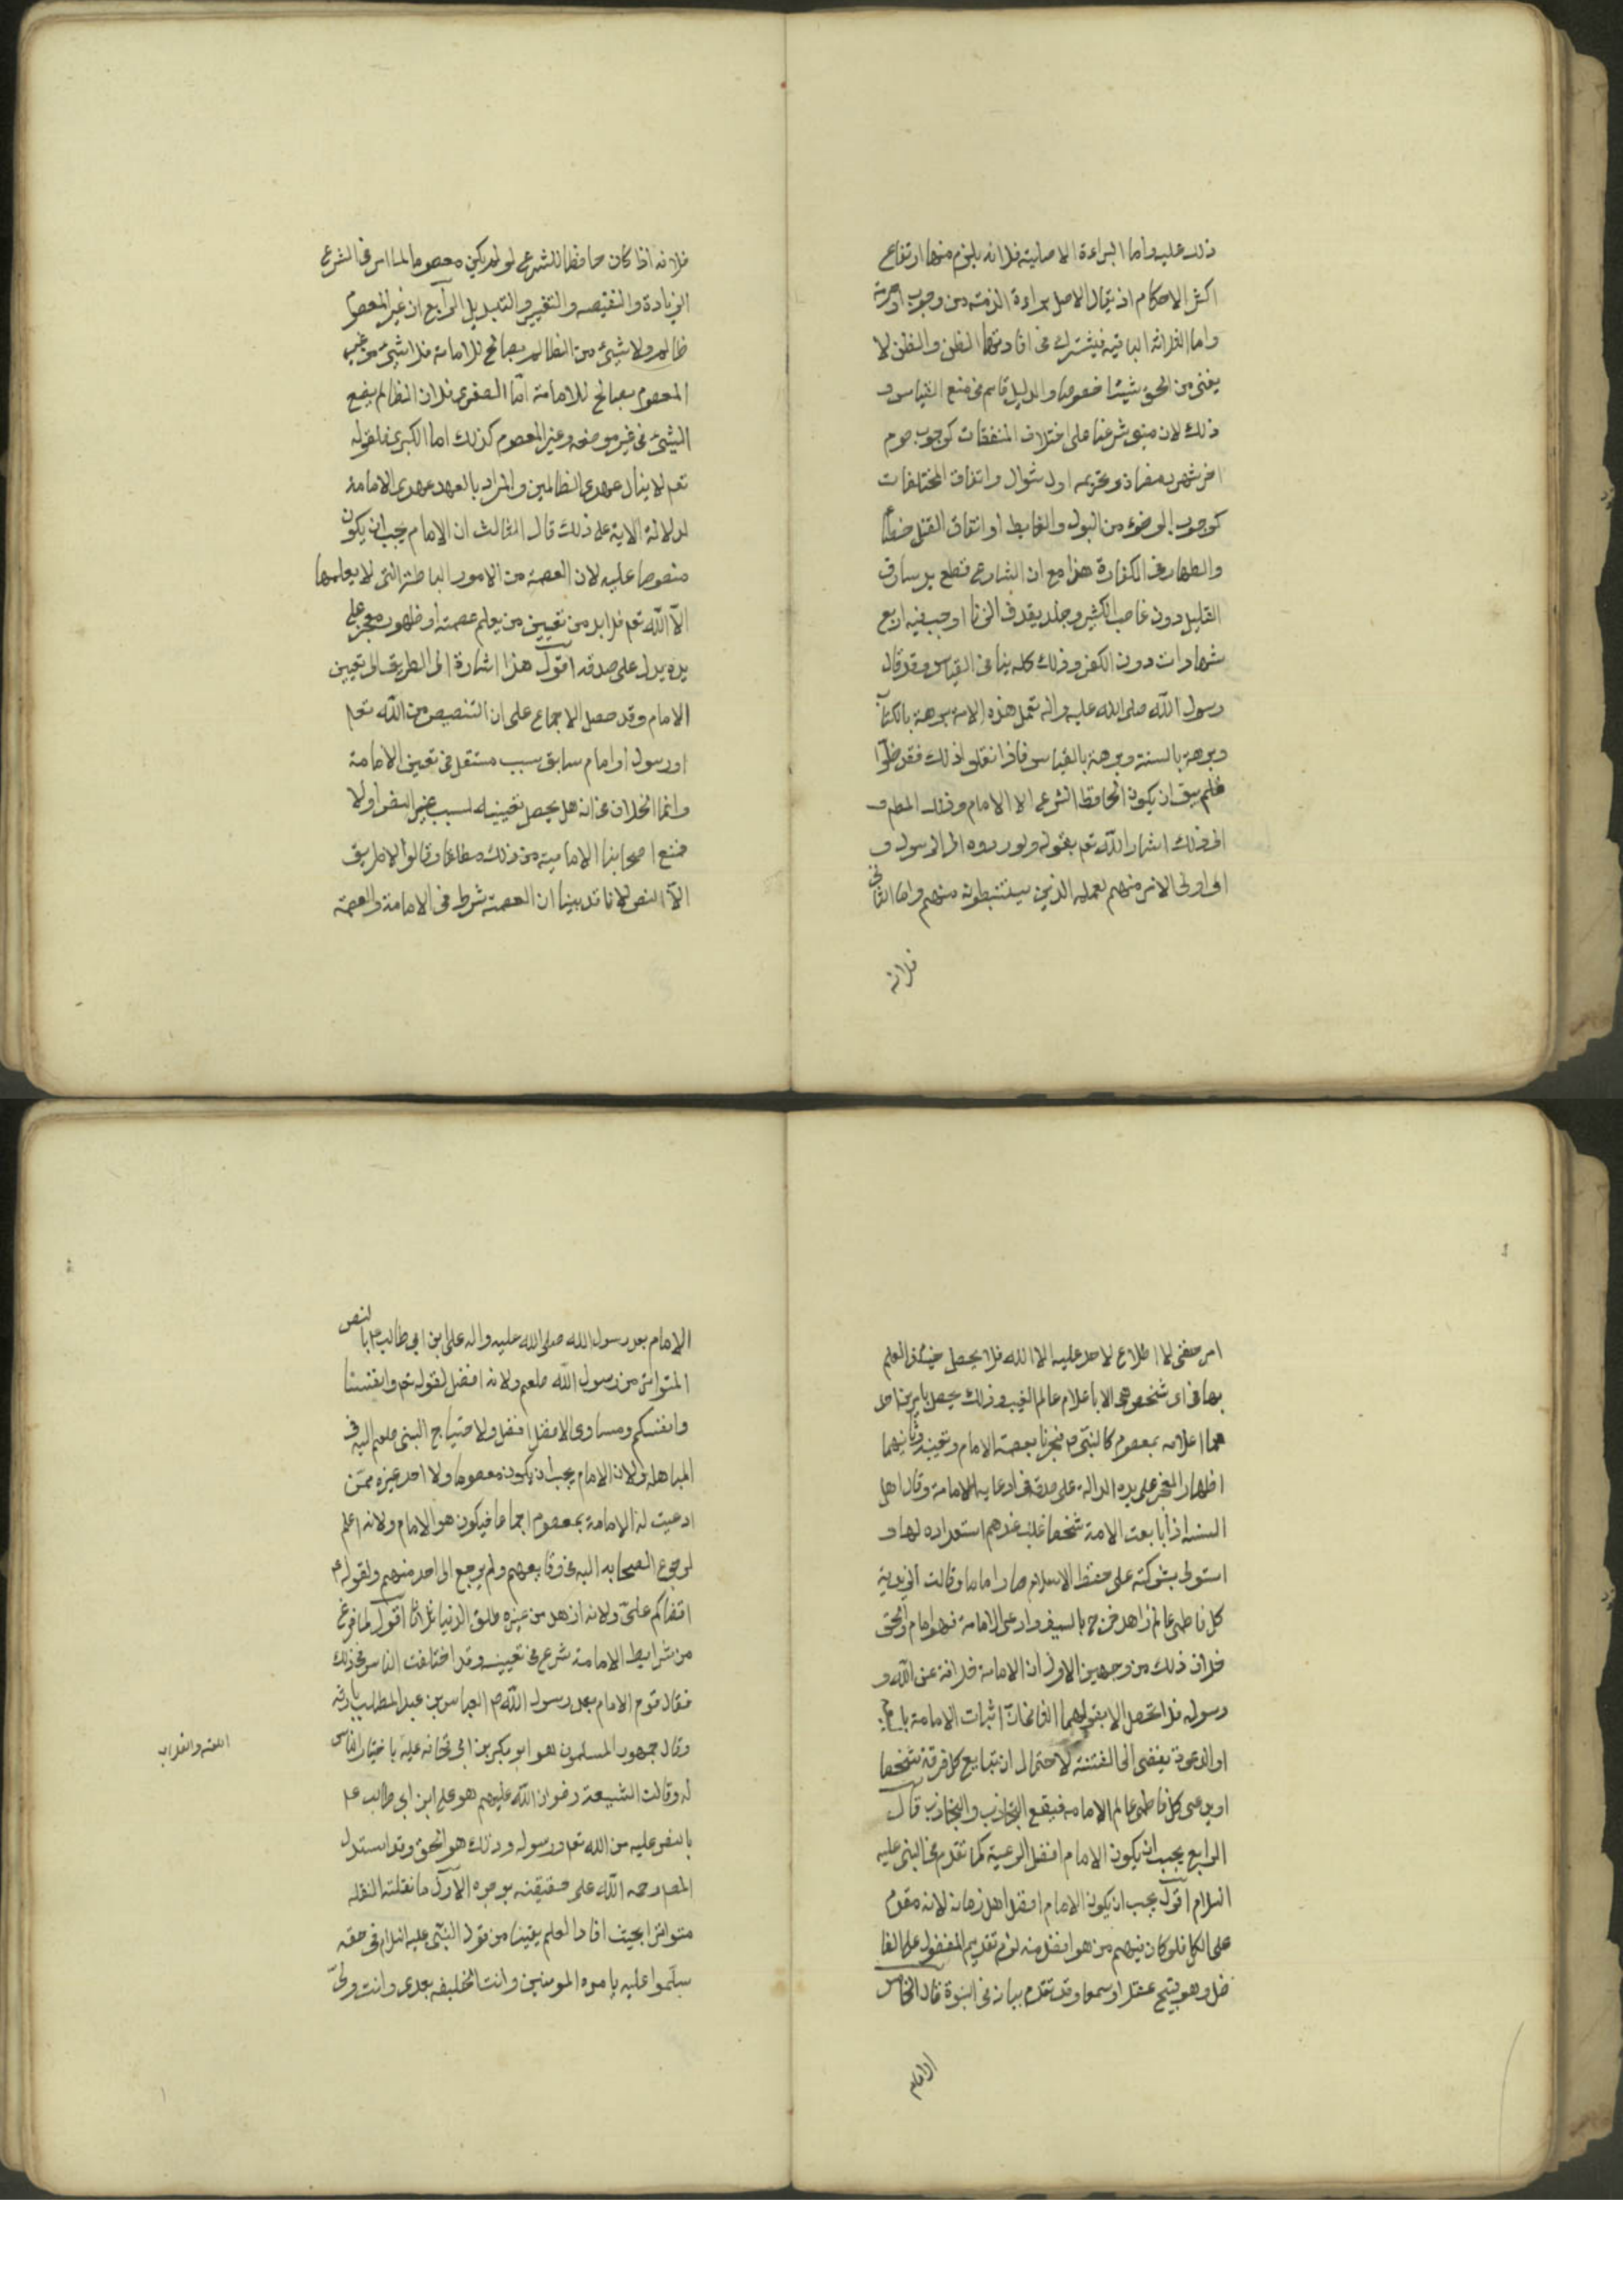 ذلك عليه واما البراءة الاصلية فلانه يلزم منها ارتفاع
اكثر الاحكام اذ يقال الاصل براءة الذمة من وجوب او حرمة
واما الثلاثة الباقية فيشترك فى افادتها الظن والظن لا
يغنى من الحق شيئا خصوصا والدليل قايم فى منع القياس و
ذلك لان مبنى شرعنا على اختلاف المتفقات كوجوب صوم
اخر شهر رمضان وتحريمه اول شوال واتفاق المختلفات
كوجوب الوضوء من البول والغايط او اتفاق القتل خطأ
والظهار فى الكفارة هذا مع ان الشارع قطع يد سارق
القليل دون غاصب الكثير وجلد بقذف الزنا واوجب فيه اربع
شهادات دون الكفر وذلك كله ينافى القياس وقد قال
رسول الله صلى الله عليه واله تعمل هذه الامة برهة بالكتاب
وبرهة بالسنة وبرهة بالقياس فاذا فعلوا ذلك فقد ضلوا
فلم يبق ان يكون الحافظ للشرع الا الامام وذلك المط و
الى ذلك اشار الله تعم بقوله ولو ردوه الى الرسول و
الى اولى الامر منهم لعلمه الذين يستنبطونه منهم واما الثانى
فلانه
فلانه اذا كان حافظا للشرع لو لم يكن معصوما لما امن فى الشرع
الزيادة والنقيصه والتغيير والتبديل الرابع ان غير المعصوم
ظالم ولا شيئ من الظالم بصالح للامامة فلا شيئ من غير
المعصوم بصالح للامامة اما الصغرى فلان الظالم يضع
الشيئ فى غير موضعه وغير المعصوم كذلك اما الكبرى فلقوله
تعم لا ينال عهدى الظالمين والمراد بالعهد عهدى الامامة
لدلالة الاية على ذلك قال الثالث ان الامام يجب ان يكون
منصوصا عليه لان العصمة من الامور الباطنة التى لا يعلمها
الا الله تعم فلا بد من تعيين من يعلم عصمته او ظهور معجز على
يده يدل على صدقه اقول هذا اشارة الى الطريق الى تعيين
الامام وقد حصل الاجماع على ان التنصيص من الله تعم
او رسوله او امام سابق سبب مستقل فى تعيين الامامة
وانما الخلاف فى انه هل يحصل تعيينه لسبب غير النص او لا
فمنع اصحابنا الامامية من ذلك مطلقا وقالوا لا طريق
الا النص لانا قد بينا ان العصمة شرط فى الامامة والعصمة
امر خفى لا اطلاع لاحد عليه الا الله فلا يحصل حينئذ العلم
بها فى اى شخص هى الا باعلام عالم الغيب وذلك يحصل بامرين احد
هما اعلامه بمعصوم كالنبى ص فيخبرنا بعصمة الامام وتعيينه وثانيهما
اظهار المعجز على يده الدالة على صدقه فى ادعايه الامامة وقال اهل
السنه اذا بايعت الامة شخصا غلب عندهم استعداده لها و
استولى بشوكته على خطط الاسلام صار اماما وقالت الزيدية
كل فاطمى عالم زاهد خرج بالسيف وادعى الامامة فهو امام والحق
خلاف ذلك من وجهين الاول ان الامامة خلافة عن الله و
رسوله فلا تحصل الا بقولهما الثانى ان اثبات الامامة
او الدعوة يفضى الى الفتنة لاحتمال ان تبايع كل فرقة شخصا
او يدعى كل فاطمى عالم الامامه فيقع التحارب والتجاذب قال
الرابع يجب ان يكون الامام افضل الرعية كما تقدم فى النبى عليه
السلام اقول يجب ان يكون الامام افضل اهل زمانه لانه مقدم
على الكل فلو كان فيهم من هو افضل منه لزم تقديم المفضول على الفا
ضل وهو قبيح عقلا وسمعا وقد تقدم بيانه فى النبوة قال الخامس
الامام
الامام بعد رسول الله صلى الله عليه واله على ابن ابى طالب ع بالنص
المتواتر من رسول الله صلعم ولانه افضل لقوله تعم وانفسنا
وانفسكم ومساوى الافضل افضل ولاحتياج النبى صلعم اليه فى
المباهلة ولان الامام يجب ان يكون معصوما ولا احد غيره ممن
ادعيت له الامامة بمعصوم اجماعا فيكون هو الامام ولانه اعلم
لرجوع الصحابه اليه فى وقايعهم ولم يرجع الى احد منهم ولقوله ع
اقضاكم على ولانه ازهد من غيره طلق الدنيا ثلاثا اقول لما فرغ
من شرايط الامامة شرع فى تعيينه وقد اختلفت الناس فى ذلك
فقال قوم الامام بعد رسول الله ص العباس بن عبد المطلب بارثه
وقال جمهور المسلمون هو ابو بكر بن ابى قحافه عليه باختيار الناس
اللعنه والعذاب
له وقالت الشيعة رضوان الله عليهم هو على ابن ابى طالب ع
بالنص عليه من الله تعم ورسوله وذلك هو الحق وقد استدل
المصـ رحمه الله على حقيقته بوجوه الاول ما نقلته النقله
متواترا بحيث افاد العلم يقينا من قول النبى عليه السلام فى حقه
سلموا عليه بامره المومنين وانت الخليفه بعدى وانت ولى